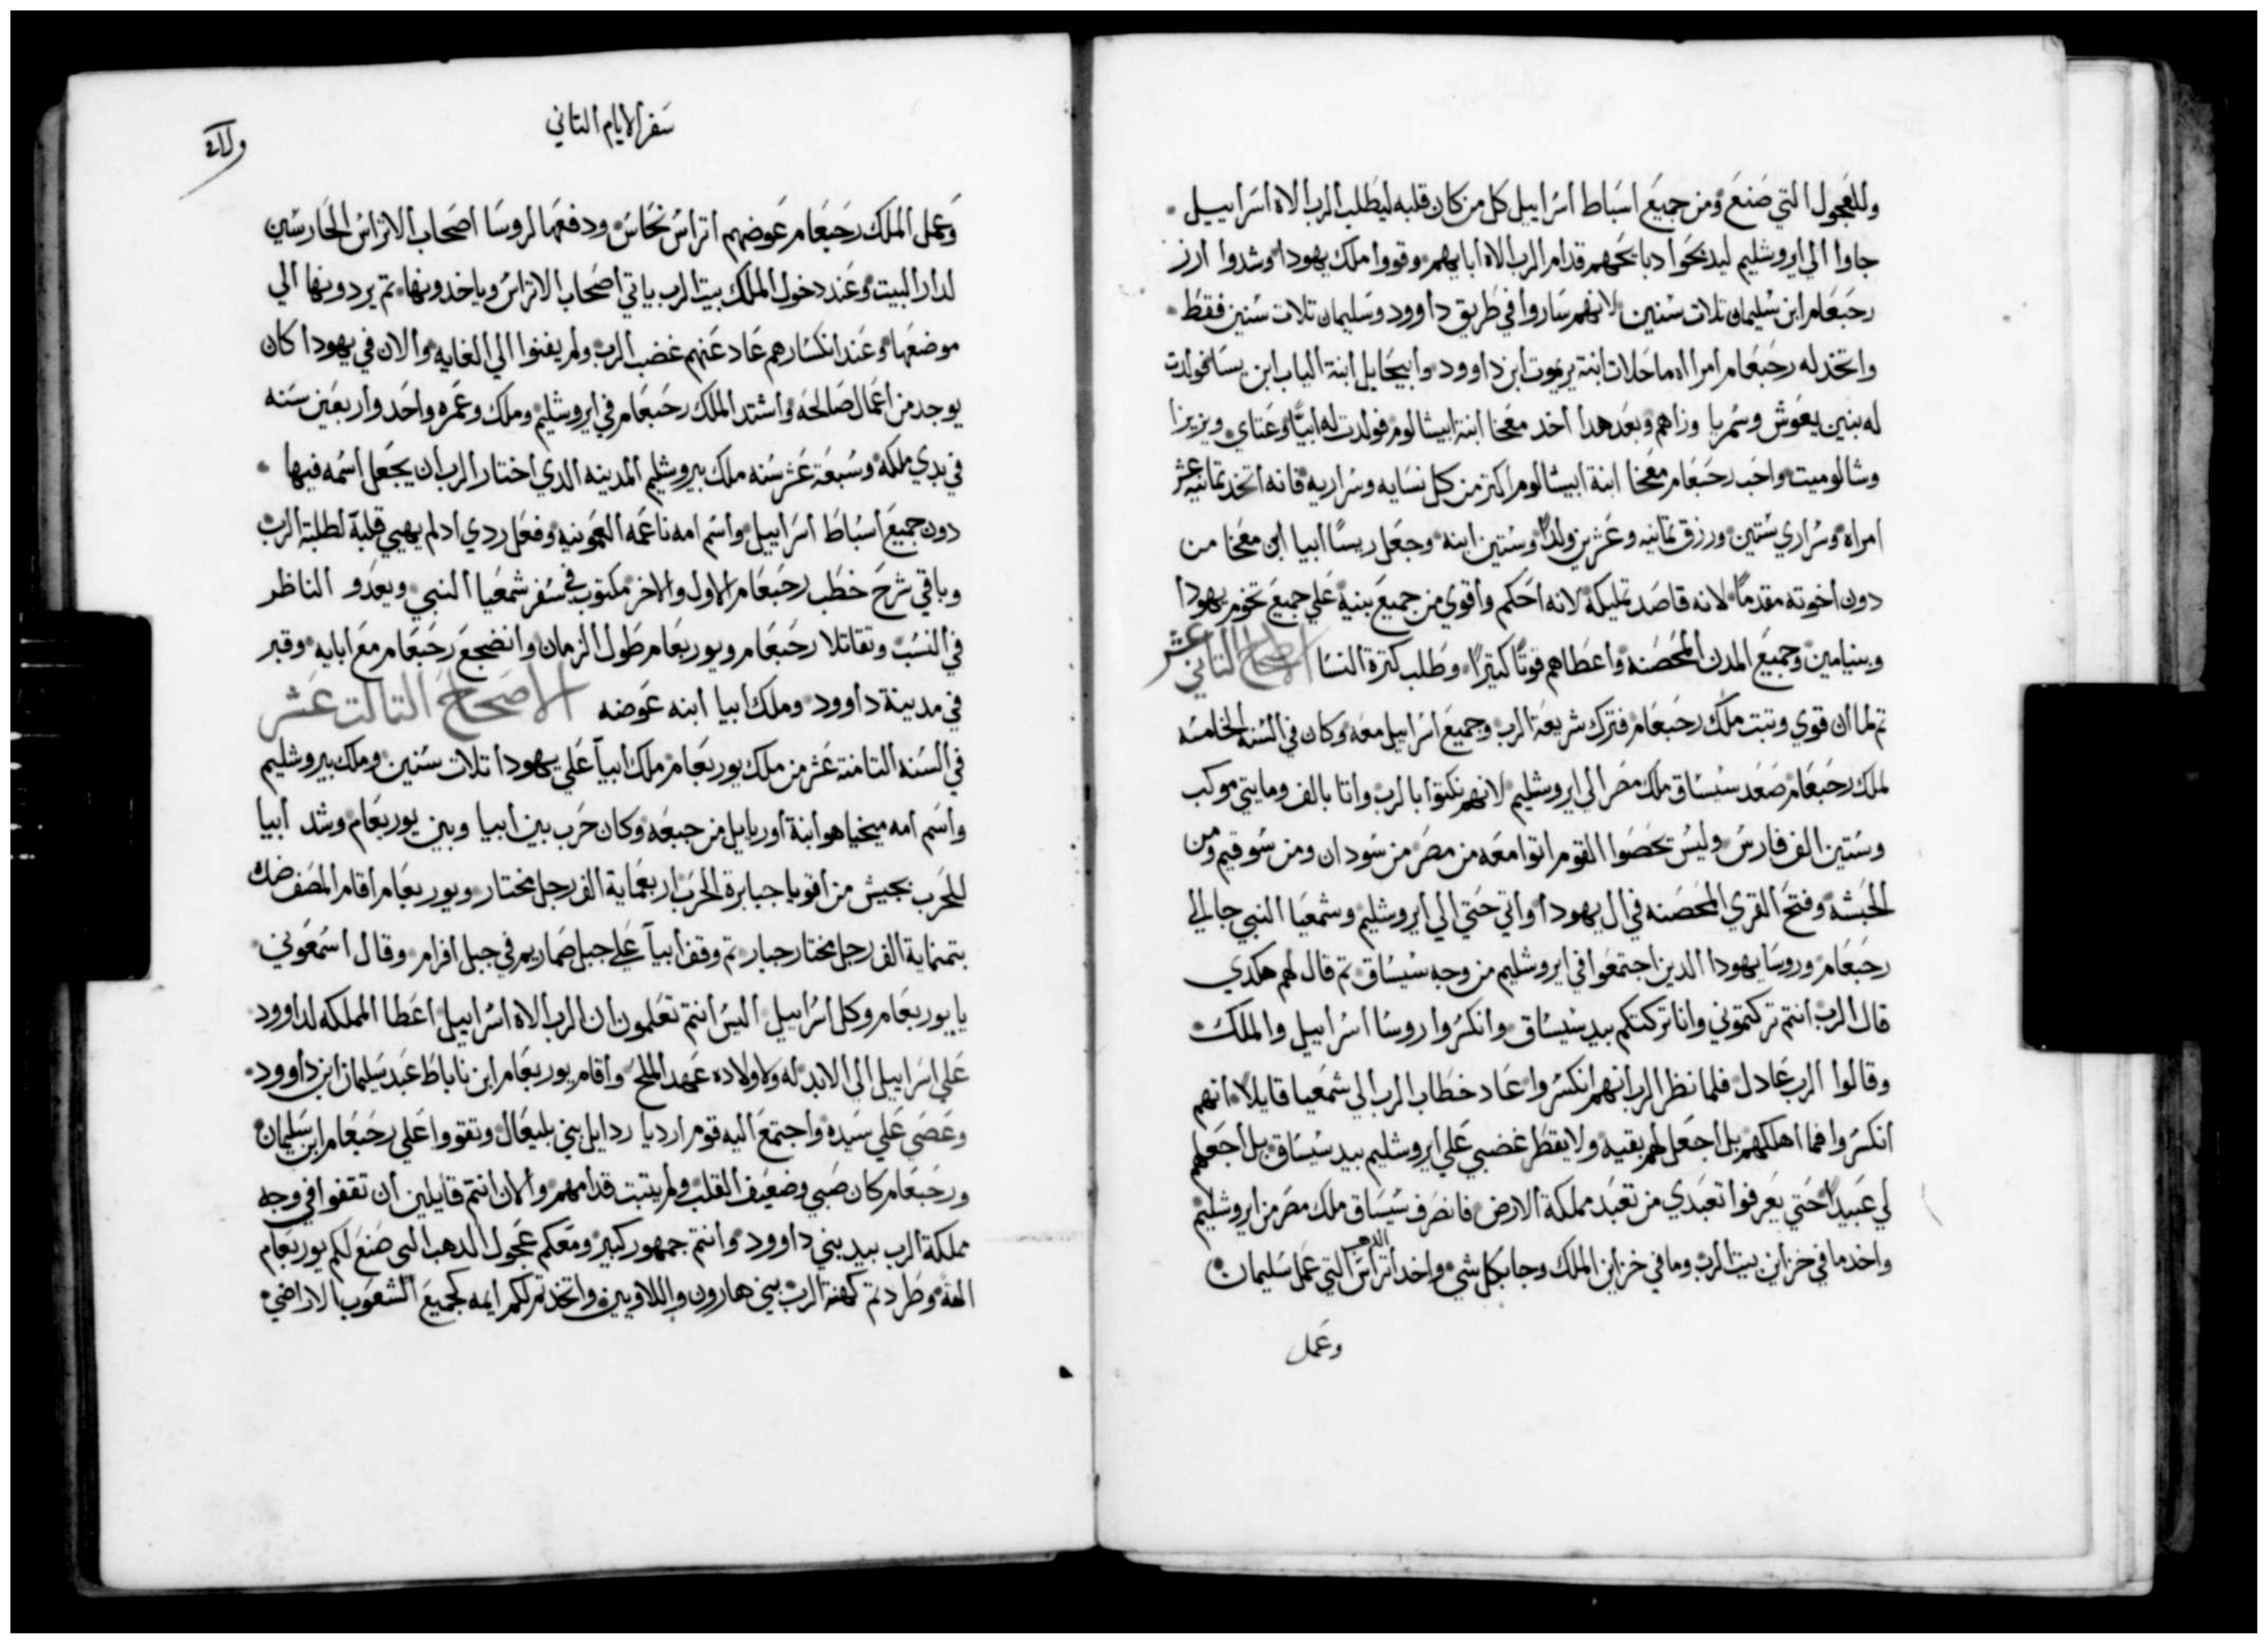 وللعجول التي صنع ومن جميع اسباط اسراييل كل من كان قلبه ليطلب الرب الاه اسراييل
جاوا الي ايروشليم ليدبحوا دبايحهم قدام الرب الاه ابايهم وقووا ملك يهودا وشدوا ازر
رحبعام ابن سليمان تلات سنين لانهم ساروا في طريق داوود وسليمان تلات سنين فقط
واتخد له رحبعام امراه ماحلات ابنة يريموت ابن داوود وابيحايل ابنة الياب ابن يسا فولدت
له بنين يعوش وسمريا وزاهم وبعد هدا اخد معخا ابنة ابيشالوم فولدت له ابيا وعتاي ويزيزا
وشالوميت واحب رحبعام معخا ابنة ابيشالوم اكتر من كل نسايه وسراريه فانه اتخد تمانيه عشر
امراه وسراري ستين ورزق تمانيه وعشرين ولدًا وستين ابنه وجعل ريسًا ابيا ابن معخا من
دون اخوته مقدمًا لانه قاصد تمليكه لانه احكم واقوي من جميع بنيه علي جميع تخوم يهودا
وبنيامين وجميع المدن المحصنه واعطاهم قوتًا كتيرًا وطلب كترة النسا الاصحاح التاني عشر
تم لما ان قوي وتبت ملك رحبعام فترك شريعة الرب وجميع اسراييل معه وكان في السنه الخامسه
لملك رحبعام صعد سيساق ملك مصر الي ايروشليم لانهم نكتوا بالرب واتا بالف ومايتي موكب
وستين الف فارس وليس تحصوا القوم اتوا معه من مصر من سودان ومن سوقيم ومن
الحبشه وفتح القري المحصنه في ال يهودا واتي حتي الي ايروشليم وشمعيا النبي جا الي
رحبعام وروسا يهودا الدين اجتمعوا في ايروشليم من وجه سيساق تم قال لهم هكدي
قال الرب انتم تركتموني وانا تركتكم بيد سيساق وانكسروا روسا اسراييل والملك
وقالوا الرب عادل فلما نظر الرب انهم انكسروا عاد خطاب الرب الي شمعيا قايلًا انهم
انكسروا فما اهلكهم بل اجعل لهم بقيه ولا يقطر غضبي علي ايروشليم بيد سيساق بل اجعلهم
لي عبيدًا حتي يعرفوا تعبدي من تعبد مملكة الارض فانصرف سيساق ملك مصر من ايروشليم
واخد ما في خزاين بيت الرب وما في خزاين الملك وجا بكل شي واخد اتراس الدهب التي عمل سليمان
وعمل
سفر الايام التاني
وعمل الملك رحبعام عوضهم اتراس نحاس ودفعها لروسا اصحاب الاتراس الحارسين
لدار البيت وعند دخول الملك بيت الرب ياتي اصحاب الاتراس وياخدونها تم يردونها الي
موضعها وعند انكسارهم عاد عنهم غضب الرب ولم يفنوا الي الغايه والان في يهودا كان
يوجد من اعمال صالحه واشتد الملك رحبعام في ايروشليم وملك وعمره واحد واربعين سنه
في بدي ملكه وسبعة عشر سنه ملك بيروشليم المدينه الدي اختار الرب ان يجعل اسمه فيها
دون جميع اسباط اسراييل واسم امه ناعمه العمونيه وفعل ردي ادلم يهيي قلبه لطلبة الرب
وباقي شرح خطب رحبعام الاول والاخر مكتوب في سفر شمعيا النبي ويعدو الناظر
في النسب وتقاتلا رحبعام ويوربعام طول الزمان وانضجع رحبعام مع ابايه وقبر
في مدينة داوود وملك ابيا ابنه عوضه الاصحاح التالت عشر
في السنه التامنة عشر من ملك يوربعام ملك ابيا علي يهودا تلات سنين وملك بيروشليم
واسم امه ميخيا هو ابنة اورياييل من جبعه وكان حرب بين ابيا وبين يوربعام وشد ابيا
للحرب بجيش من اقويا جبابرة الحرب اربعماية الف رجل مختار ويوربعام اقام المصف ضك
بتمنماية الف رجل مختار جبار تم وقف ابيا علي جبل صماريم في جبل افرام وقال اسمعوني
يا يوربعام وكل اسراييل اليس انتم تعلمون ان الرب الاه اسراييل اعطا المملكه لداوود
علي اسراييل الي الابد له ولاولاده عهد الملح واقام يوربعام ابن ناباط عبد سليمان ابن داوود
وعصي علي سيده واجتمع اليه قوم ارديا ردايل بني بليعال وتقووا علي رحبعام ابن سليمان
ورحبعام كان صبي وضعيف القلب ولم يتبت قدامهم والان انتم قايلين ان تقفوا في وجه
مملكة الرب بيد بني داوود وانتم جمهور كبير ومعكم عجول الدهب التي صنع لكم يوربعام
الهة وطردتم كهنة الرب بني هارون واللاويين واتخدتم لكم ايمه كجميع الشعوب الاراضي